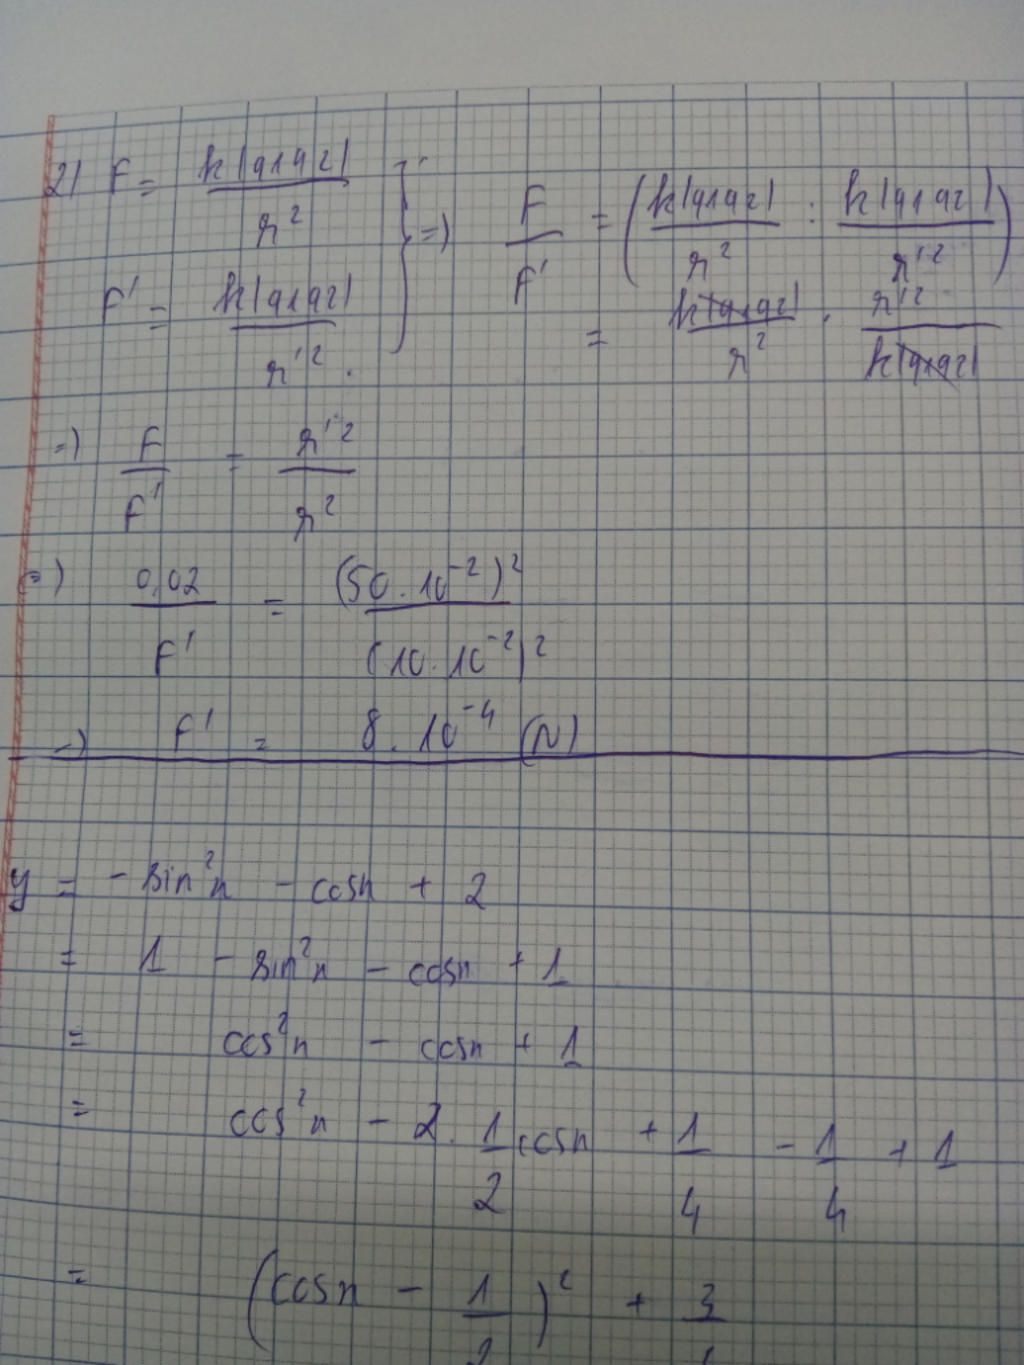 2) F = k|q1q2| / r² } => F / F' = ( k|q1q2| / r² : k|q1q2| / r'² )
F' = k|q1q2| / r'² . = k|q1q2| / r² . r'² / k|q1q2|
=) F / F' = r'² / r²
(=) 0,02 / F' = (50.10⁻²)² / (10.10⁻²)²
=) F' = 8.10⁻⁴ (N)
y = - sin²x - cosx + 2
= 1 - sin²x - cosx + 1
= cos²x - cosx + 1
= cos²x - 2. 1/2 cosx + 1/4 - 1/4 + 1
= (cosx - 1/2)² + 3